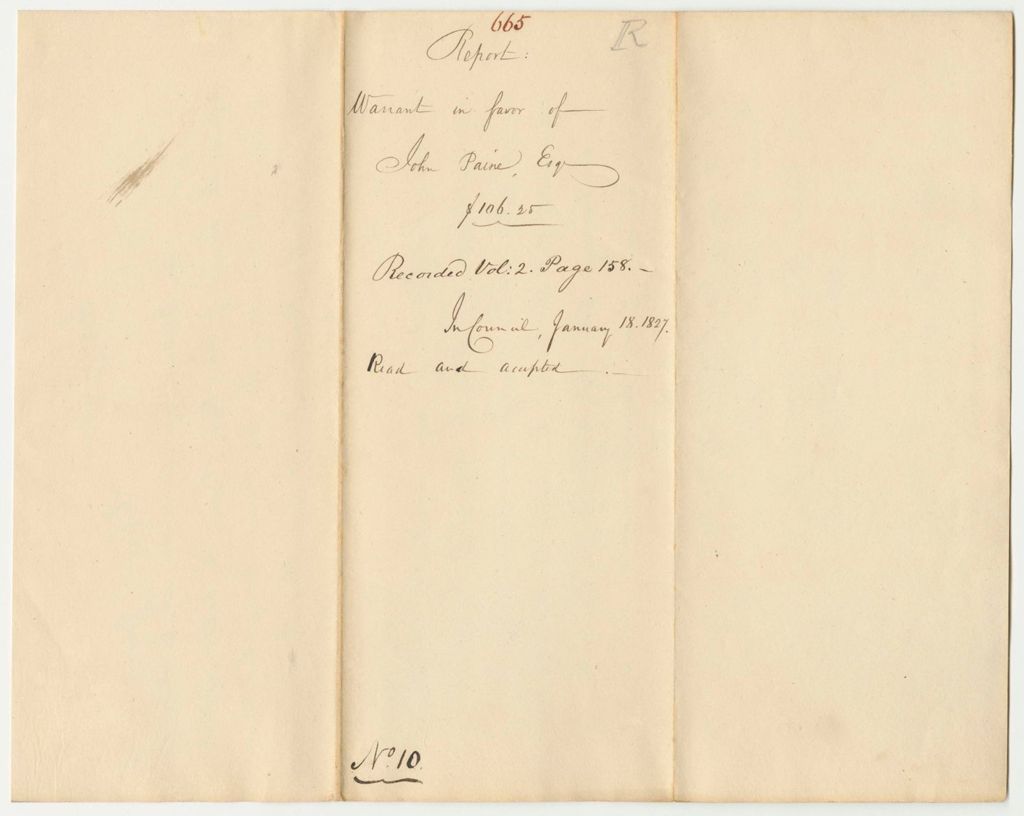 665
R
Report:
Warrant in favor of
John Paine, Esqr
$106.25
Recorded Vol: 2. Page 158. –
In Council, January 18. 1827.
Read and accepted. –
No. 10.